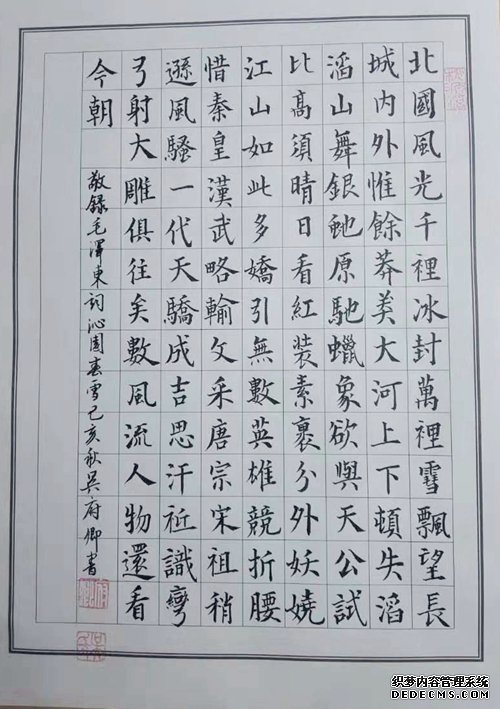 北國風光千裡冰封萬裡雪飄望長
城內外惟餘莽莽大河上下頓失滔
滔山舞銀虵原馳蠟象欲與天公試
比高須晴日看紅裝素裹分外妖嬈
江山如此多嬌引無數英雄競折腰
惜秦皇漢武略輸文采唐宗宋祖稍
遜風騷一代天驕成吉思汗祗識彎
弓射大雕俱往矣數風流人物還看
今朝
敬錄毛澤東詞沁園春雪己亥秋吳府卿書
织梦内容管理系统
DEDECMS.COM